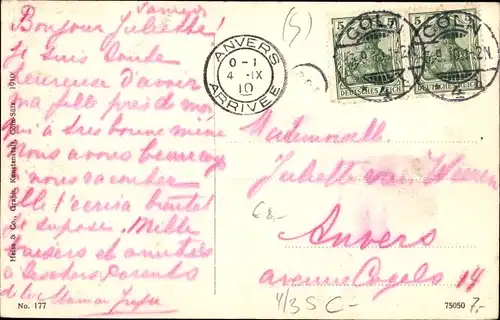 Samedi
Bonjour Juliette!
Je suis toute
heureuse d'avoir
ma fille près de moi
qui a très bonne mine
nous avons beaucoup
à nous raconter
elle t'écrira bientôt
je suppose. Mille
baisers et amitiés
à tes chers parents
de la Maman
(5)
ANVERS
0-1
4 IX
10
ARRIVÉE
5 5
DEUTSCHES REICH DEUTSCHES REICH
CÖLN CÖLN
Mademoiselle
Juliette van
Anvers
avenue Cogels 14
€8,-
4/35 C-
7,-
Heiss & Co., Graph. Kunstanstalt, Cöln-Sülz. 1910.
No. 177
75050